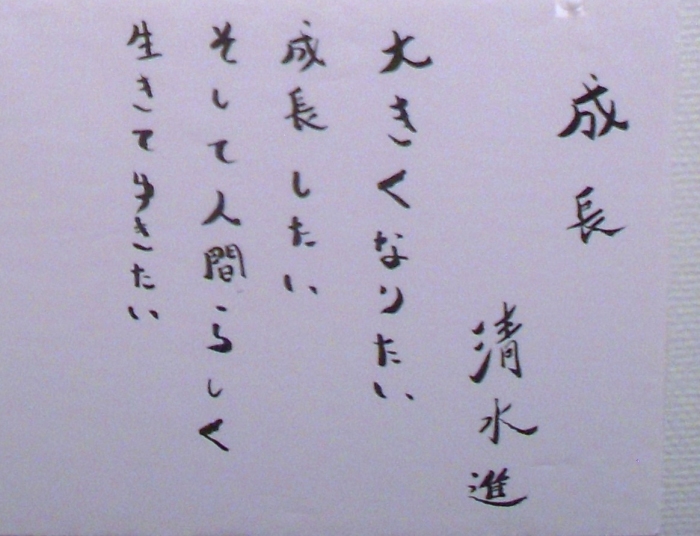 成長
清水進
大きくなりたい
成長したい
そして人間らしく
生きて生きたい